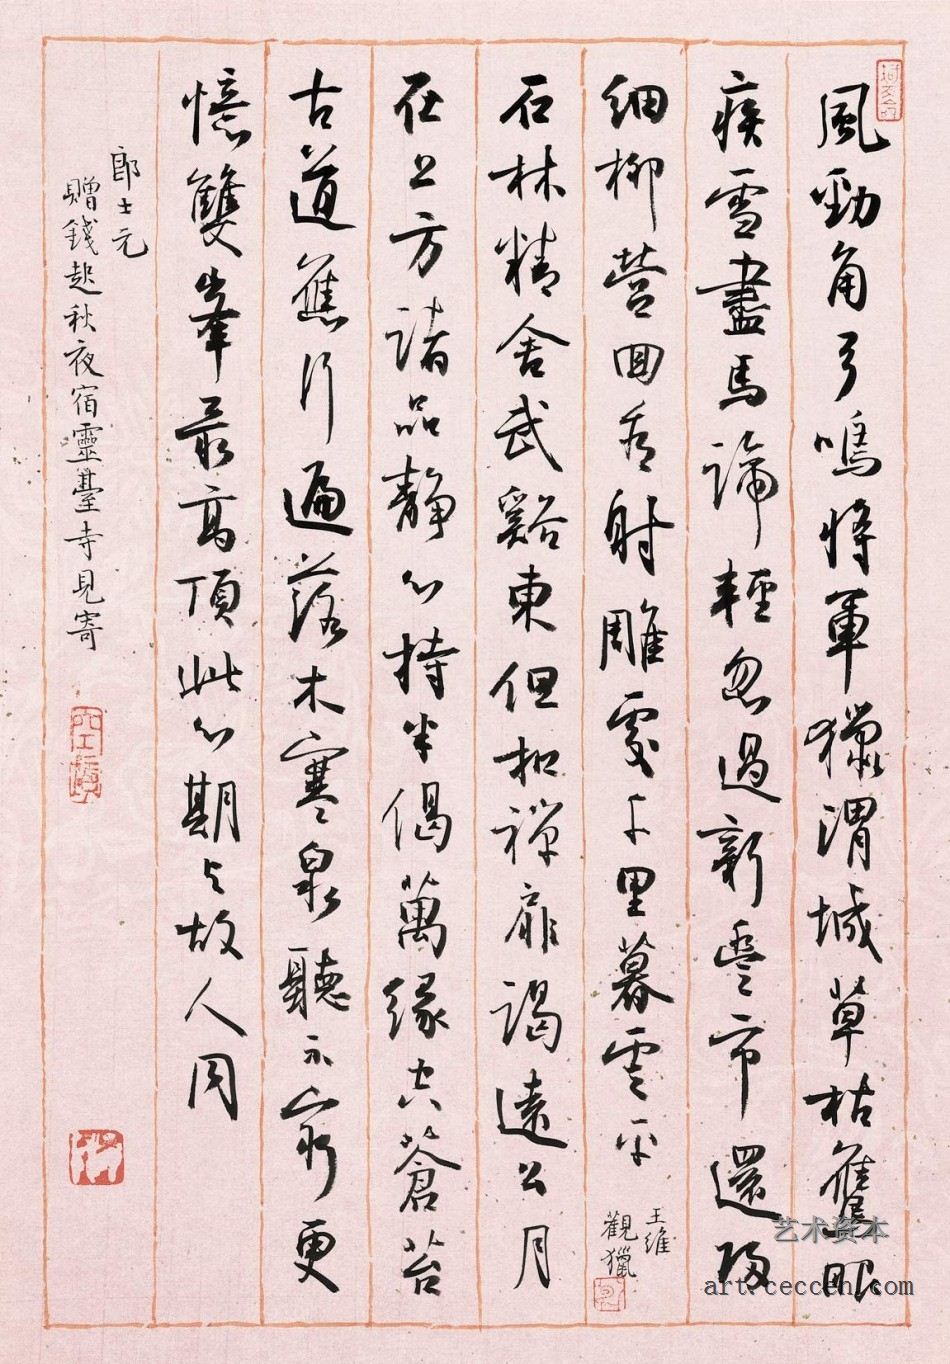 風勁角弓鳴將軍獵渭城草枯鷹眼
疾雪盡馬蹄輕忽過新豐市還歸
細柳營回看射雕處千里暮雲平
王維
觀獵
石林精舍武谿東但扣禪扉謁遠公月
在上方諸品靜心持半偈萬緣空蒼苔
古道應行遍落木寒泉聽不窮更
憶雙峯最高頂此心期與故人同
郎士元
贈錢起秋夜宿靈臺寺見寄
艺术资本
art.ceccen.com